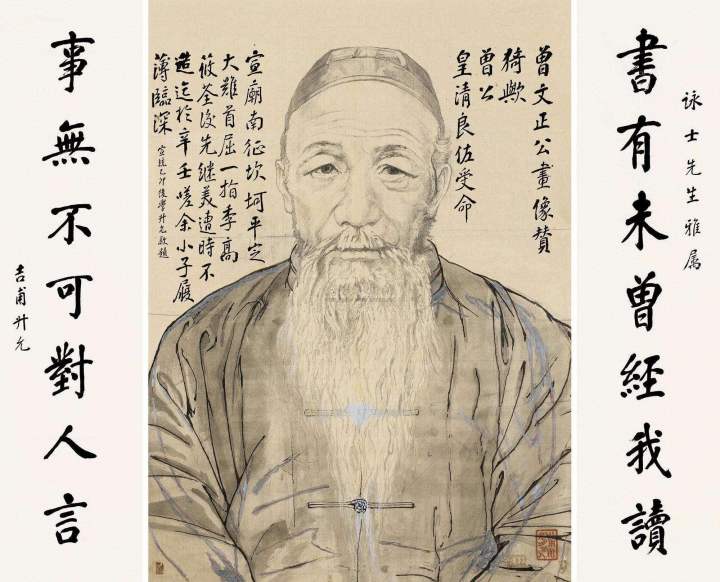 詠士先生雅屬
書有未曾經我讀
曾文正公畫像贊
猗歟
曾公
皇清良佐受命
宣廟南征坎坷平定
大難首屈一指李高
筱荃後先继美遭時不
造迄於辛壬嗟余小子履
薄臨深
宣統乙卯後學升允敬題
事無不可對人言
吉甫升允